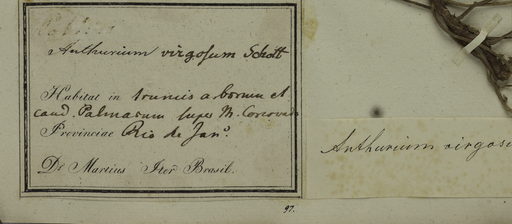 Anthurium virgosum Schott
Habitat in truncis arborum et
caud. Palmarum super M. Corcovado
Provinciae Rio de Jano.
Dr. Martius Iter Brasil.
Anthurium virgos
97.